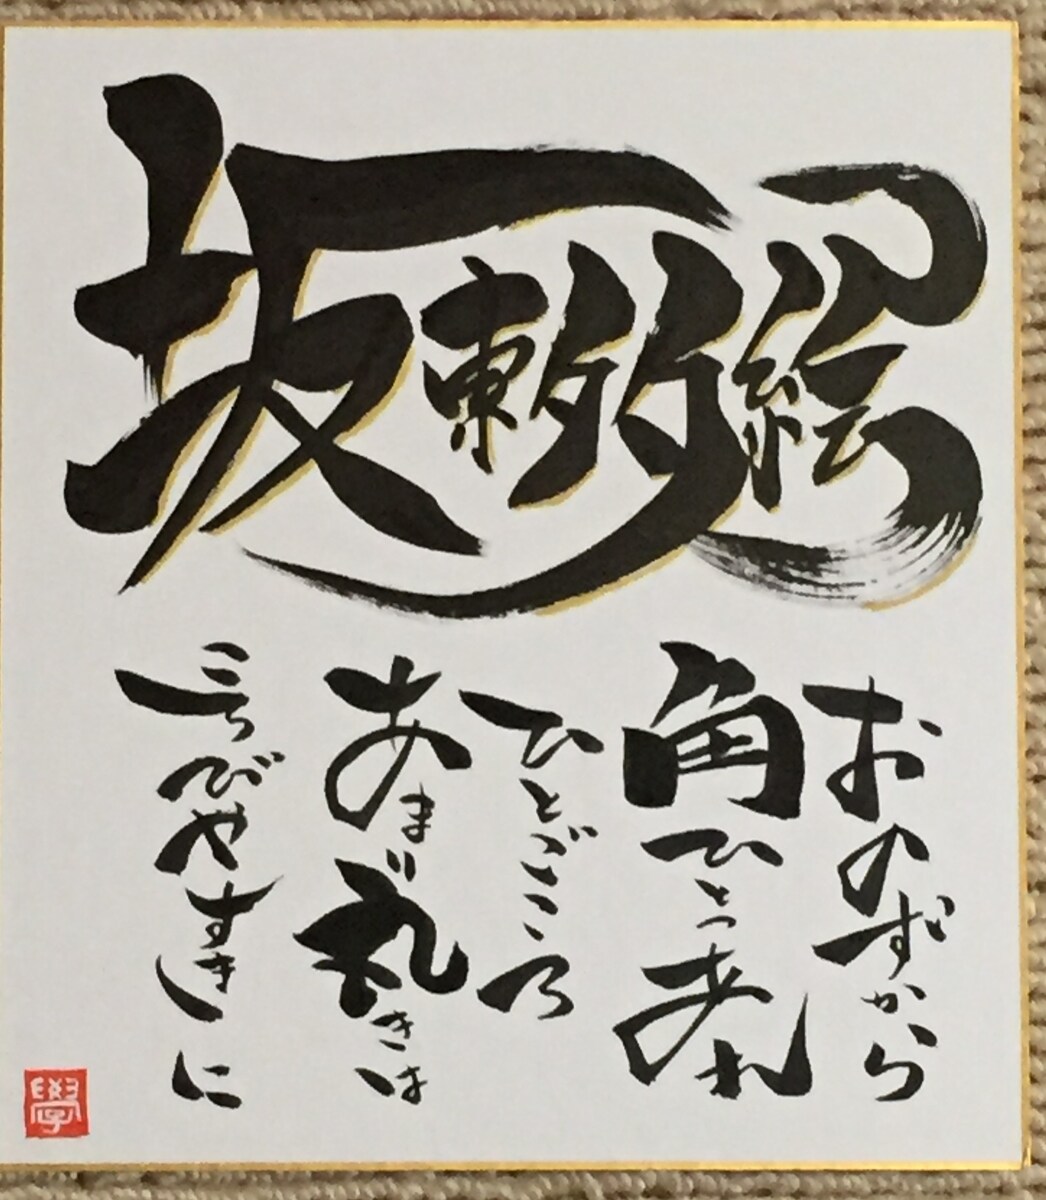 坂東多絵
おのずから
角ひとつあれ
ひとごころ
あまり丸きは
ころびやすきに
學